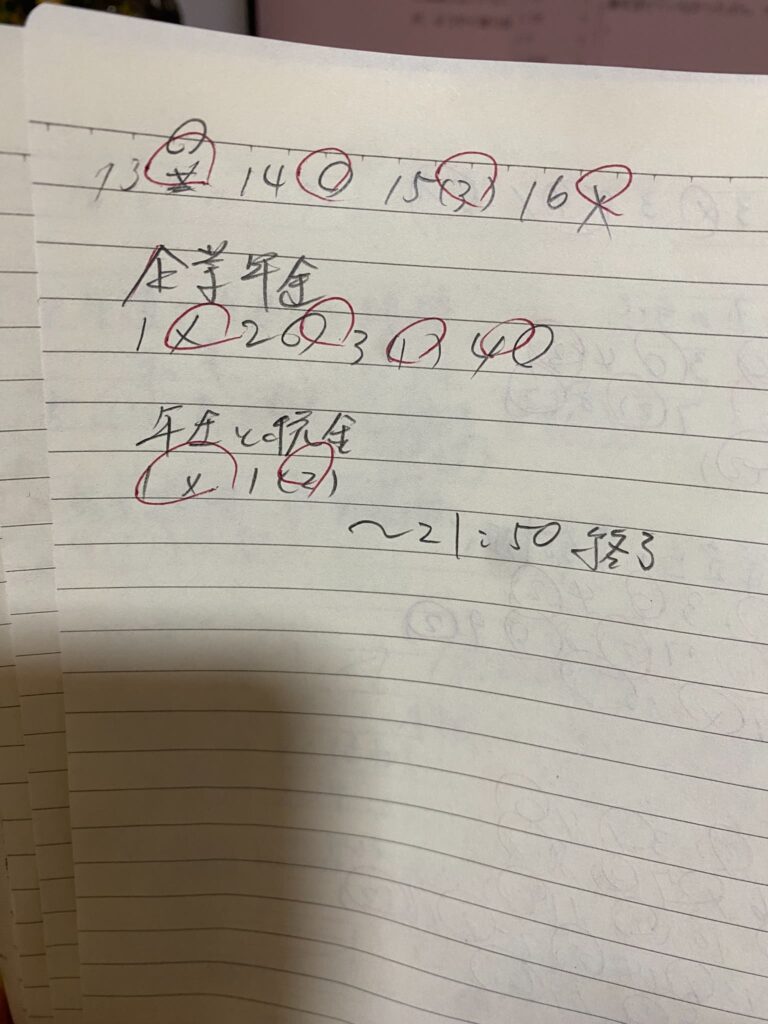 13 14 〇 15 (3) 16 ×
企業年金
1 × 2 3 4
年金と税金
1 × 1 (2)
〜21:50 終了